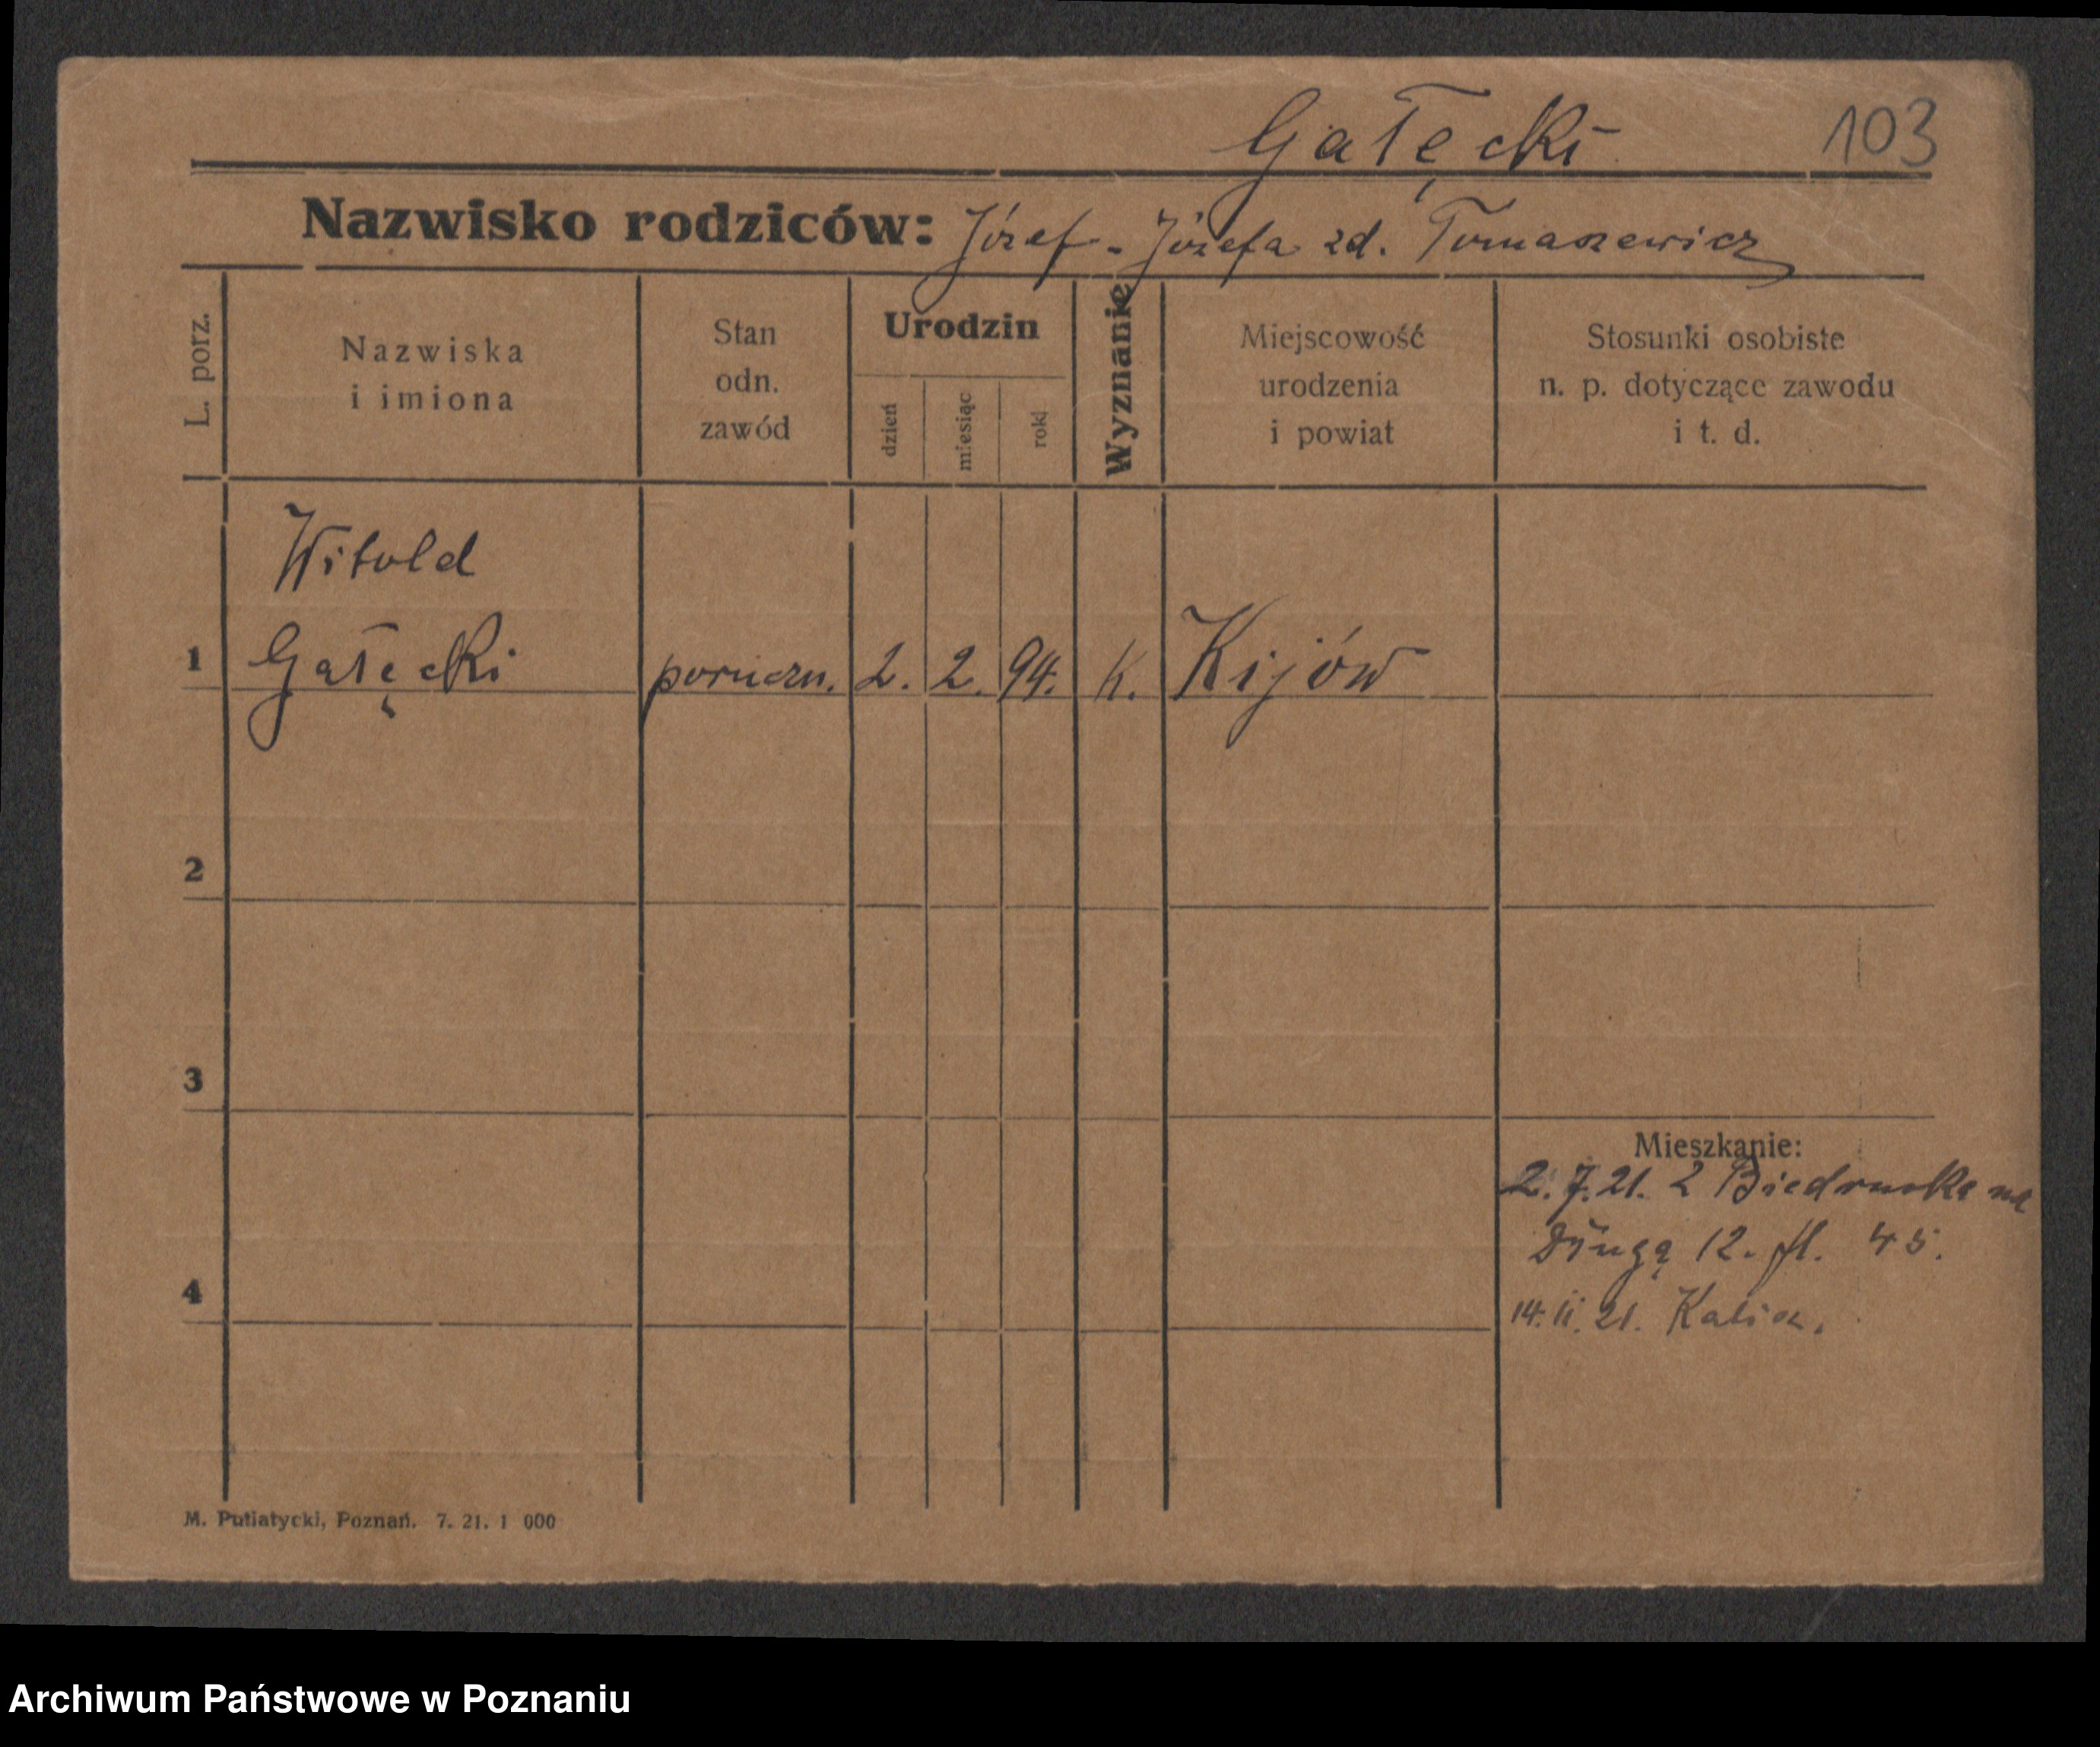 Gałęcki 103
Nazwisko rodziców: Józef - Józefa zd. Tomaszewicz
L. porz.
Nazwiska
i imiona
Stan
odn.
zawód
Urodzin
dzień
miesiąc
rok
Wyznanie
Miejscowość
urodzenia
i powiat
Stosunki osobiste
n. p. dotyczące zawodu
i t. d.
Witold
1 Gałęcki poruczn. 2. 2. 94. K. Kijów
2
3
Mieszkanie:
2. 7. 21. z Biedruska na
Długą 12. fl. 45.
4
14. 11. 21. Kalisz.
M. Putiatycki, Poznań. 7. 21. 1 000
Archiwum Państwowe w Poznaniu